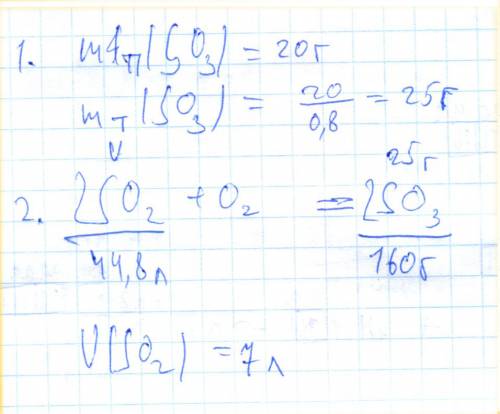 1. m пр (SO3) = 20 г
m т (SO3) = 20/0,8 = 25 г
V 25 г
2. 2SO2 + O2 = 2SO3
44,8 л 160 г
V(SO2) = 7 л